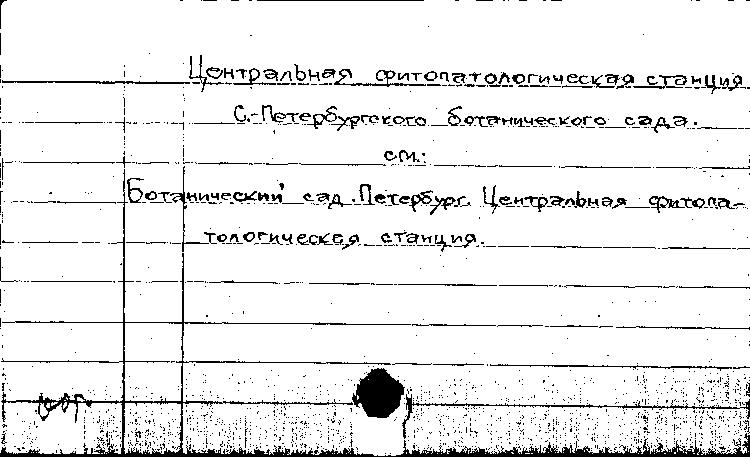 Центральная фитопатологическая станция
С.-Петербургского ботанического сада.
см.:
Ботанический сад. Петербург. Центральная фитопа-
тологическая станция.